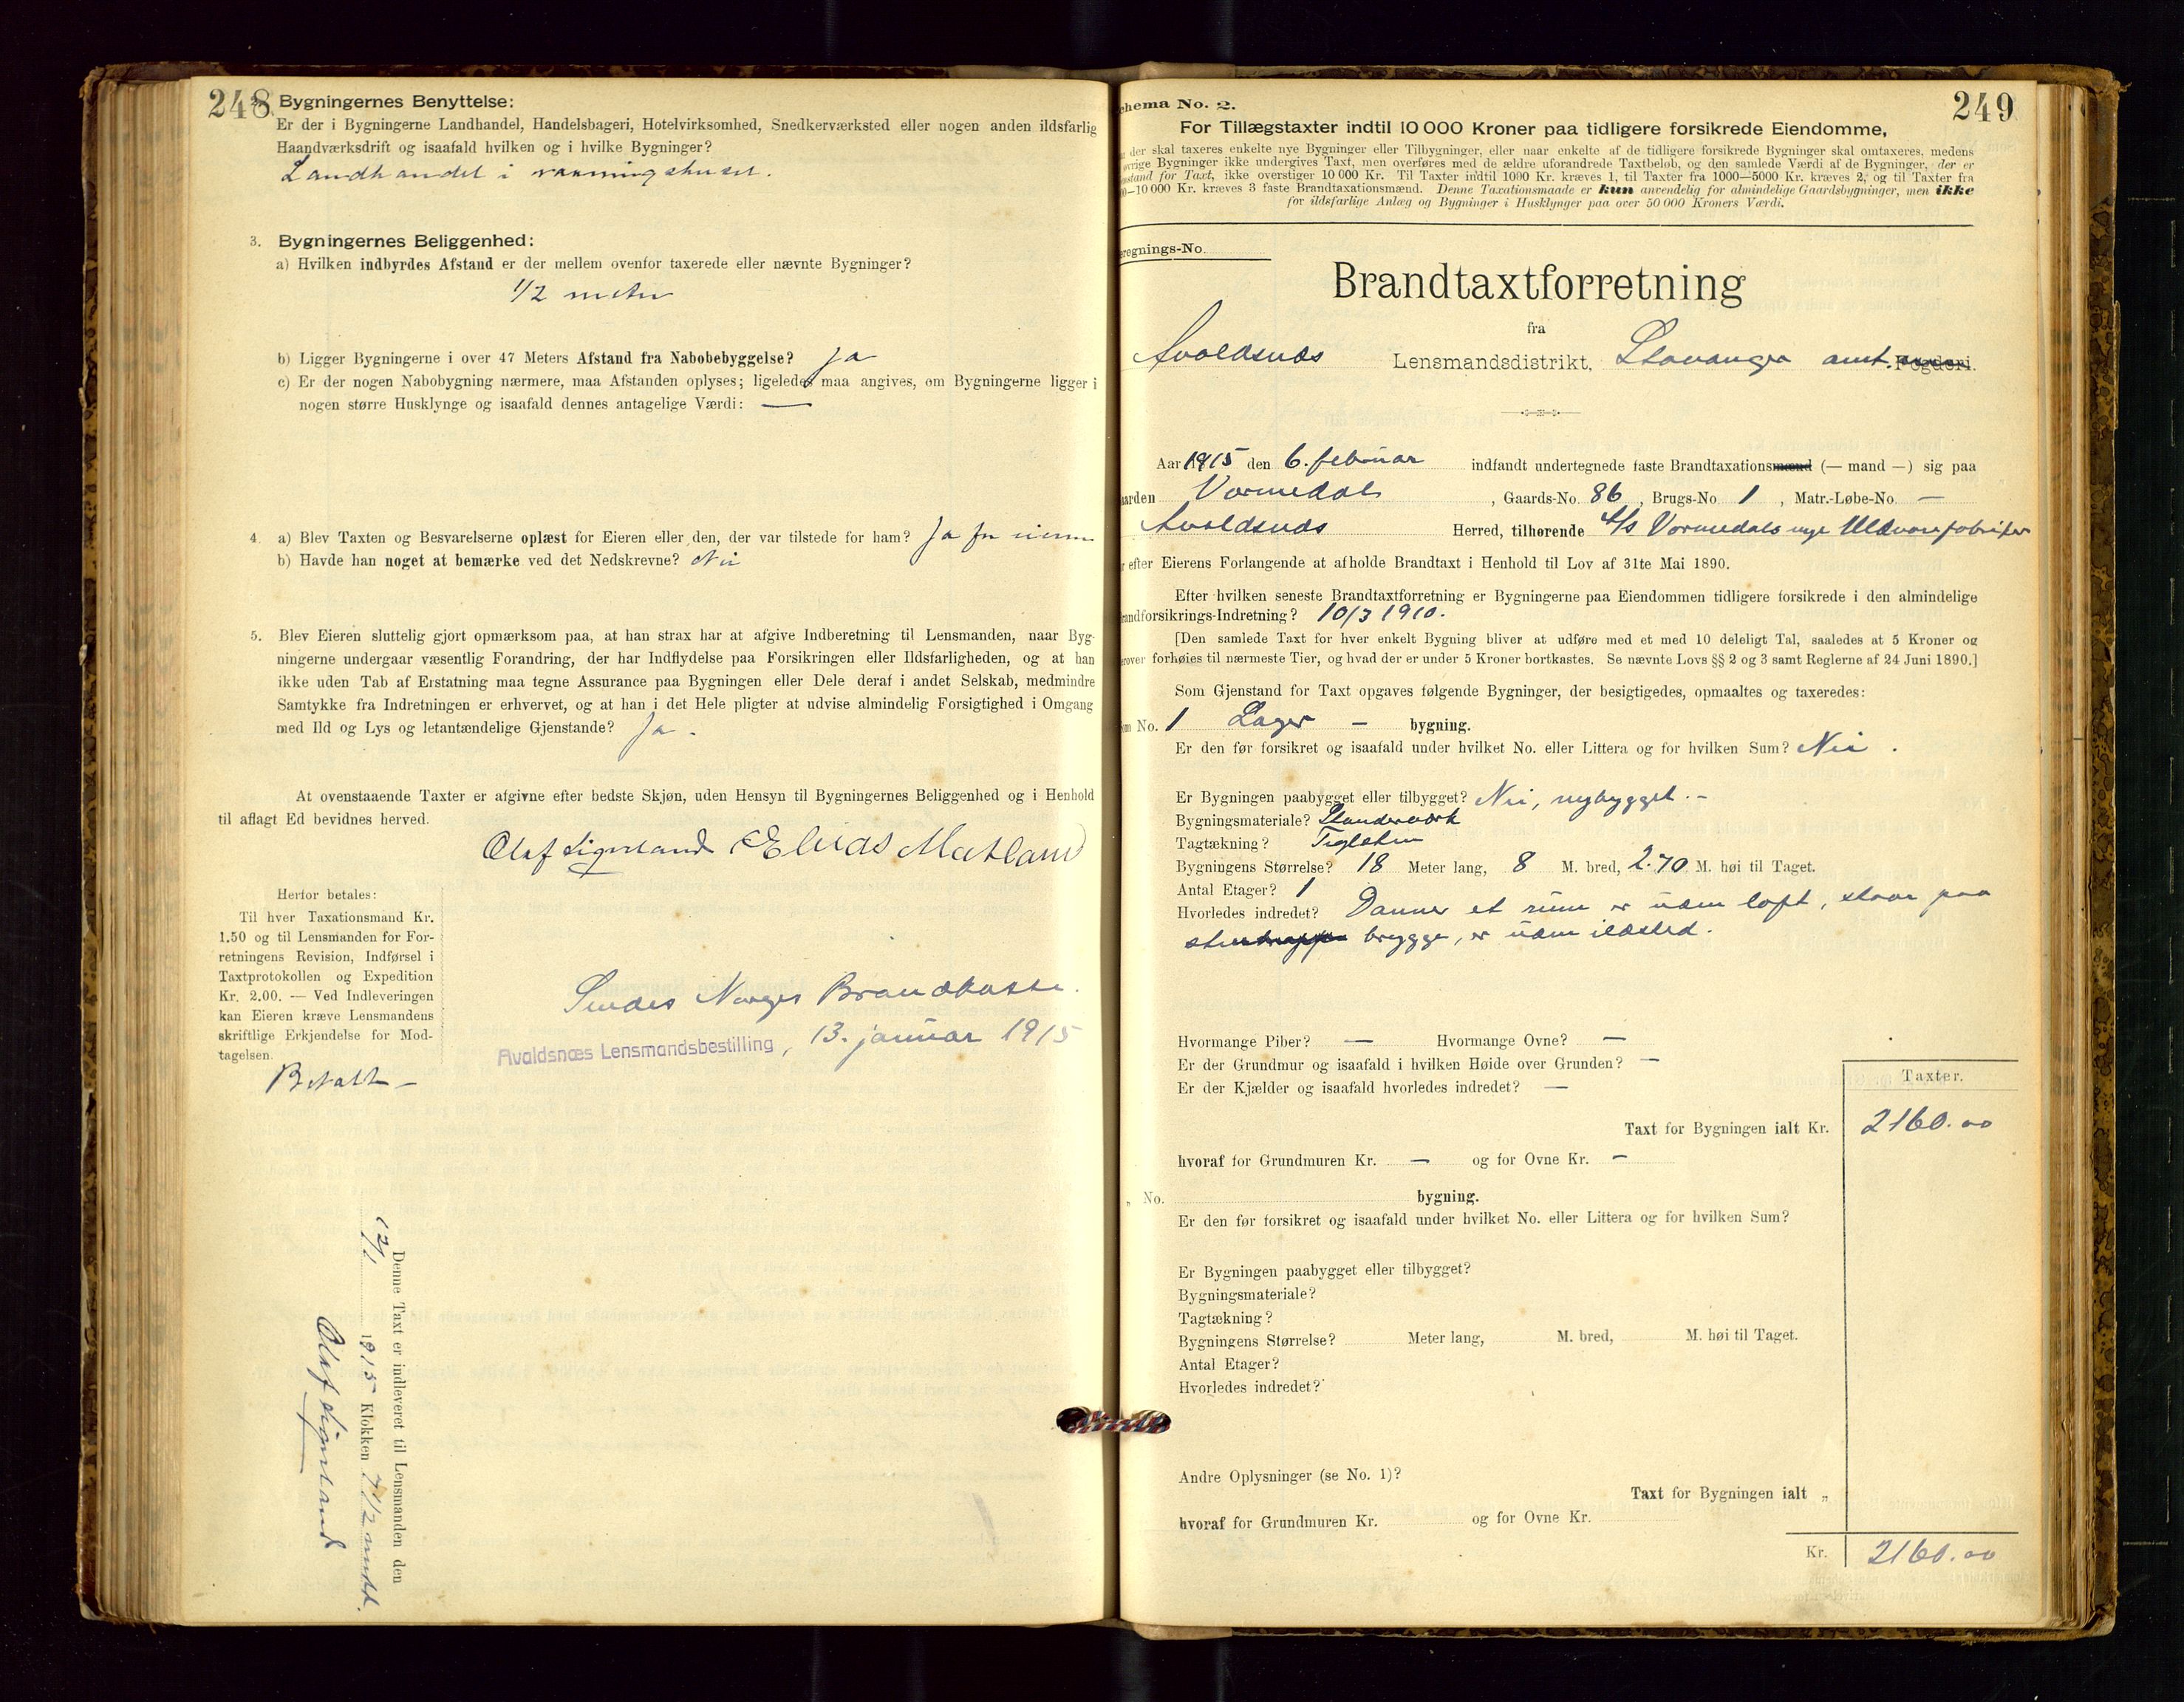 248
2. Bygningernes Benyttelse:
Er der i Bygningerne Landhandel, Handelsbageri, Hotelvirksomhed, Snedkerværksted eller nogen anden ildsfarlig
Haandværksdrift og isaafald hvilken og i hvilke Bygninger?
Landhandel i vaaningshuset.
3. Bygningernes Beliggenhed:
a) Hvilken indbyrdes Afstand er der mellem ovenfor taxerede eller nævnte Bygninger?
1/2 meter
b) Ligger Bygningerne i over 47 Meters Afstand fra Nabobebyggelse? Ja
c) Er der nogen Nabobygning nærmere, maa Afstanden oplyses; ligeledes maa angives, om Bygningerne ligger i
nogen større Husklynge og isaafald dennes antagelige Værdi: —
4. a) Blev Taxten og Besvarelserne oplæst for Eieren eller den, der var tilstede for ham? Ja for eieren
b) Havde han noget at bemærke ved det Nedskrevne? Nei
5. Blev Eieren sluttelig gjort opmærksom paa, at han strax har at afgive Indberetning til Lensmanden, naar Byg-
ningerne undergaar væsentlig Forandring, der har Indflydelse paa Forsikringen eller Ildsfarligheden, og at han
ikke uden Tab af Erstatning maa tegne Assurance paa Bygningen eller Dele deraf i andet Selskab, medmindre
Samtykke fra Indretningen er erhvervet, og at han i det Hele pligter at udvise almindelig Forsigtighed i Omgang
med Ild og Lys og letantændelige Gjenstande? Ja.
At ovenstaaende Taxter er afgivne efter bedste Skjøn, uden Hensyn til Bygningernes Beliggenhed og i Henhold
til aflagt Ed bevidnes herved.
Olaf Elias Matland
Herfor betales:
Til hver Taxationsmand Kr.
1.50 og til Lensmanden for For-
retningens Revision, Indførsel i
Taxtprotokollen og Expedition
Kr. 2.00. — Ved Indleveringen
kan Eieren kræve Lensmandens
skriftlige Erkjendelse for Mod-
tagelsen.
Betalt –
Sendes Norges Brandkasse.
Avaldsnæs Lensmandsbestilling, 13. januar 1915
Denne Taxt er indleveret til Lensmanden den
12/1 1915 Klokken 7 1/2
Olaf
249
Schema No. 2.
For Tillægstaxter indtil 10 000 Kroner paa tidligere forsikrede Eiendomme,
der skal taxeres enkelte nye Bygninger eller Tilbygninger, eller naar enkelte af de tidligere forsikrede Bygninger skal omtaxeres, medens
øvrige Bygninger ikke undergives Taxt, men overføres med de ældre uforandrede Taxtbeløb, og den samlede Værdi af de Bygninger, der er
Gjenstand for Taxt, ikke overstiger 10 000 Kr. Til Taxter indtil 1000 Kr. kræves 1, til Taxter fra 1000—5000 Kr. kræves 2, og til Taxter fra
5000—10 000 Kr. kræves 3 faste Brandtaxationsmænd. Denne Taxationsmaade er kun anvendelig for almindelige Gaardsbygninger, men ikke
for ildsfarlige Anlæg og Bygninger i Husklynger paa over 50 000 Kroners Værdi.
Beregnings-No.
Brandtaxtforretning
fra
Avaldsnæs Lensmandsdistrikt, Stavanger amt. Fogderi.
Aar 1915 den 6. februar indfandt undertegnede faste Brandtaxationsmænd (— mand —) sig paa
Gaarden Vormedal, Gaards-No. 86, Brugs-No. 1, Matr.-Løbe-No. —
Avaldsnæs Herred, tilhørende A/S Vormedals nye Uldvarefabriker
for efter Eierens Forlangende at afholde Brandtaxt i Henhold til Lov af 31te Mai 1890.
Efter hvilken seneste Brandtaxtforretning er Bygningerne paa Eiendommen tidligere forsikrede i den almindelige
Brandforsikrings-Indretning? 10/3 1910.
[Den samlede Taxt for hver enkelt Bygning bliver at udføre med et med 10 deleligt Tal, saaledes at 5 Kroner og
derover forhøies til nærmeste Tier, og hvad der er under 5 Kroner bortkastes. Se nævnte Lovs §§ 2 og 3 samt Reglerne af 24 Juni 1890.]
Som Gjenstand for Taxt opgaves følgende Bygninger, der besigtigedes, opmaaltes og taxeredes:
Som No. 1 Lager – bygning.
Er den før forsikret og isaafald under hvilket No. eller Littera og for hvilken Sum? Nei.
Er Bygningen paabygget eller tilbygget? Nei, nybygget. –
Bygningsmateriale? Standerværk
Tagtækning? Teglsten
Bygningens Størrelse? 18 Meter lang, 8 M. bred, 2.70 M. høi til Taget.
Antal Etager? 1
Hvorledes indredet? Danner et rum er uden loft, staar paa
brygge, er uden ildsted.
Hvormange Piber? — Hvormange Ovne? —
Er der Grundmur og isaafald i hvilken Høide over Grunden? —
Er der Kjælder og isaafald hvorledes indredet? —
Taxter.
Taxt for Bygningen ialt Kr. 2160.00
hvoraf for Grundmuren Kr. — og for Ovne Kr. —
„ No. bygning.
Er den før forsikret og isaafald under hvilket No. eller Littera og for hvilken Sum?
Er Bygningen paabygget eller tilbygget?
Bygningsmateriale?
Tagtækning?
Bygningens Størrelse? Meter lang, M. bred, M. høi til Taget.
Antal Etager?
Hvorledes indredet?
Andre Oplysninger (se No. 1)?
Taxt for Bygningen ialt „
hvoraf for Grundmuren Kr. og for Ovne Kr.
Kr. 2160.00